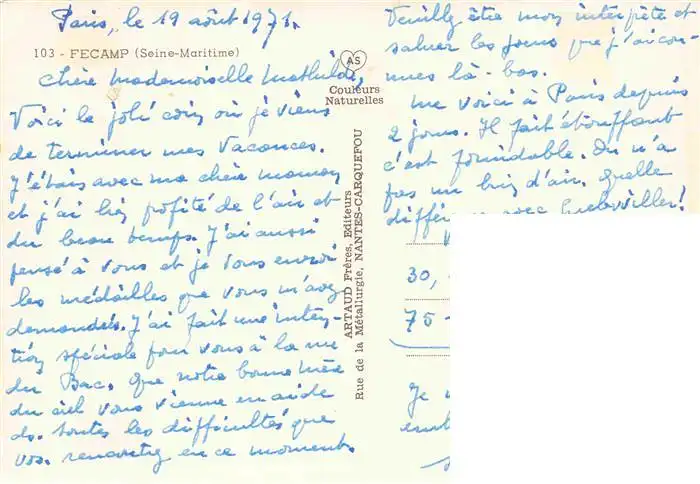 Paris, le 19 août 1971.
103 - FECAMP (Seine-Maritime)
Chère Mademoiselle Mathilde,
Voici le joli coin où je viens
de terminer mes vacances.
J'étais avec ma chère maman
et j'ai bien profité de l'air et
du beau temps. J'ai aussi
pensé à vous et je vous envoi
les médailles que vous m'avez
demandés. J'ai fait une inten-
tion spéciale pour vous à la rue
du Bac. Que notre bonne mère
du ciel vous vienne en aide
ds. toutes les difficultés que
vos. rencontrez en ce moment.
AS
Couleurs
Naturelles
ARTAUD Frères, Editeurs
Rue de la Métallurgie, NANTES-CARQUEFOU
Veuillez être mon interprète et
saluer les gens que j'ai con-
nues là-bas.
Me voici à Paris depuis
2 jours. Il fait étouffant
c'est formidable. On n'a
pas un brin d'air. Quelle
différence avec Guebwiller!
30,
75-
Je